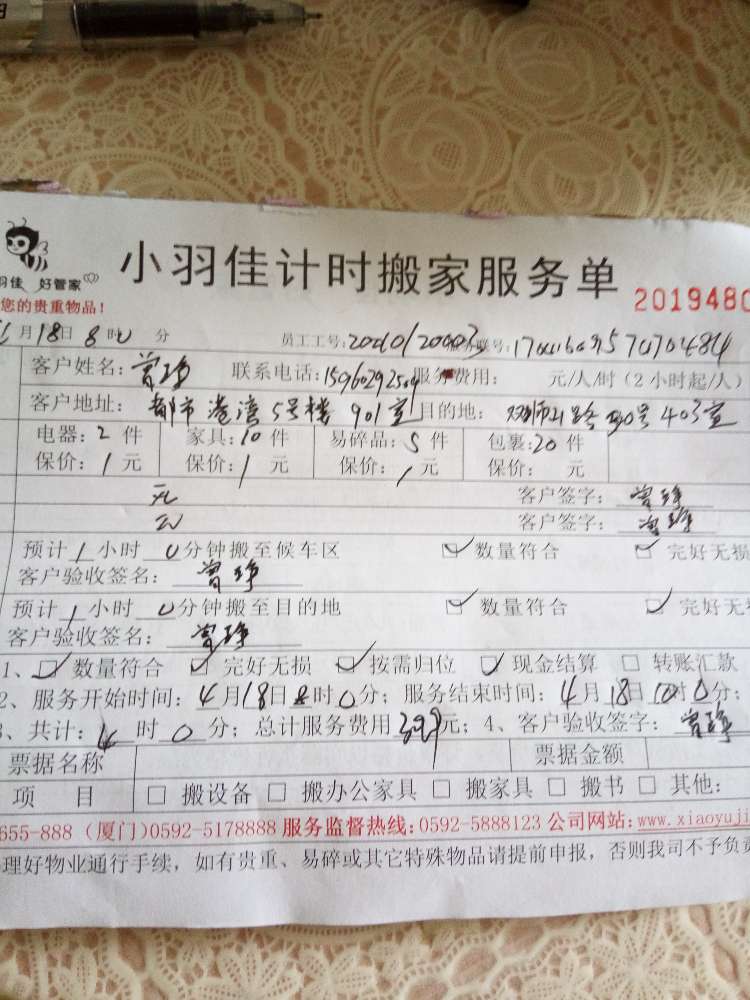 小羽佳计时搬家服务单
羽佳 好管家
您的贵重物品!
2019480
月18日8时0分 员工工号:20010/20003 号:
客户姓名:曾琤 联系电话: 服务费用: 元/人/时(2小时起/人)
客户地址:都市港湾5号楼901室 目的地: 路 号403室
电器:2件 家具:10件 易碎品:5件 包裹:20件
保价:1元 保价:1元 保价:1元 保价: 元
无 客户签字:曾琤
客户签字:曾琤
预计1小时0分钟搬至候车区 ☑数量符合 ☑完好无损
客户验收签名:曾琤
预计1小时0分钟搬至目的地 ☑数量符合 ☑完好无
客户验收签名:曾琤
1、☑数量符合 ☑完好无损 ☑按需归位 ☑现金结算 □转账汇款
2、服务开始时间:4月18日8时0分;服务结束时间:4月18日10时0分;
、共计:4时0分;总计服务费用399元;4、客户验收签字:曾琤
票据名称 票据金额
项 目 □搬设备 □搬办公家具 □搬家具 □搬书 □其他:
655-888 (厦门)0592-5178888 服务监督热线:0592-5888123 公司网站:www.xiaoyuji
理好物业通行手续,如有贵重、易碎或其它特殊物品请提前申报,否则我司不予负